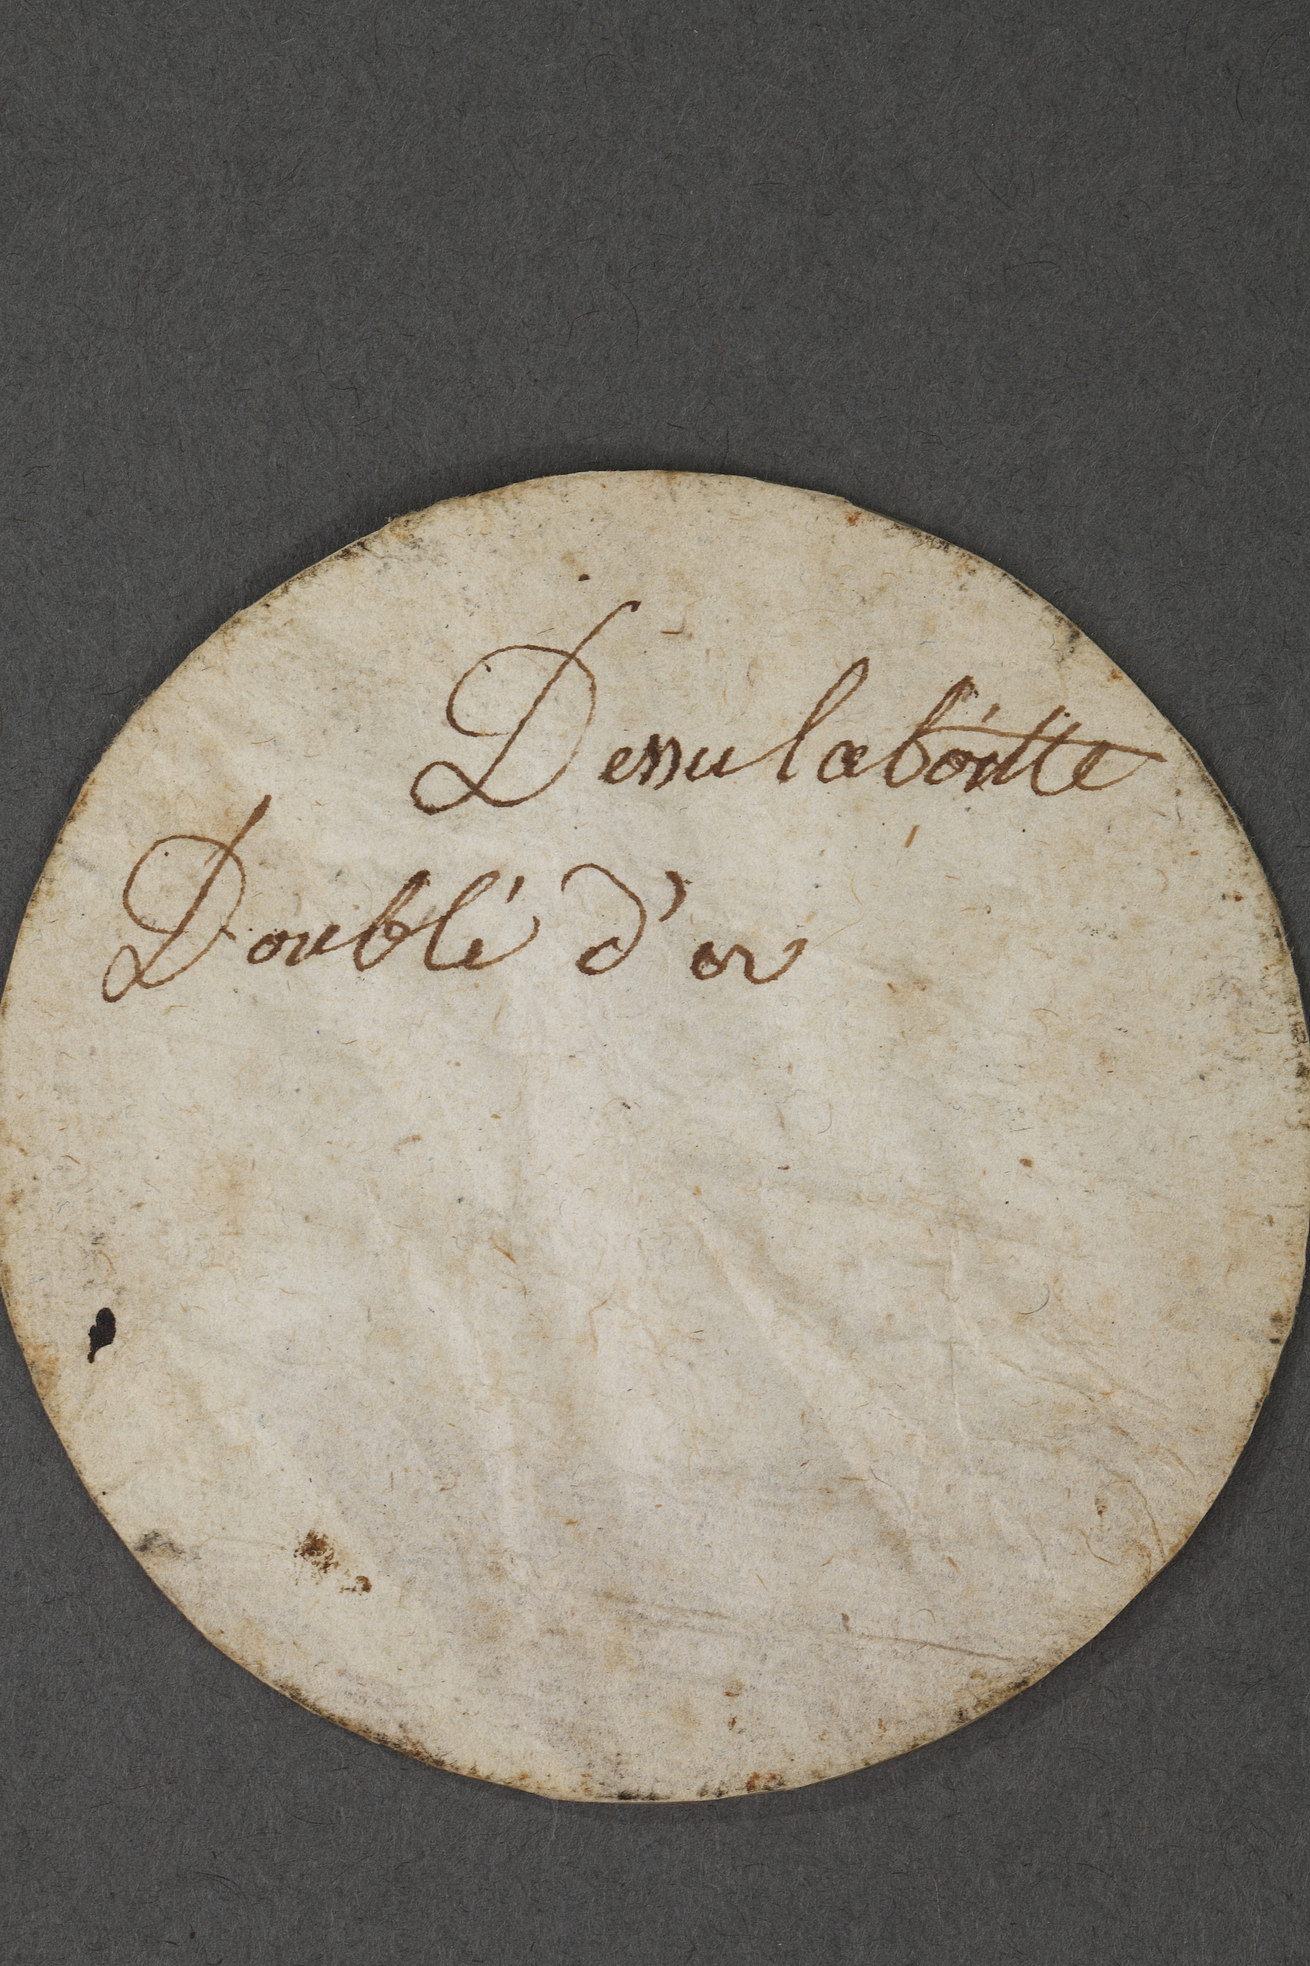 Dessu la boitte
Doublé d'or